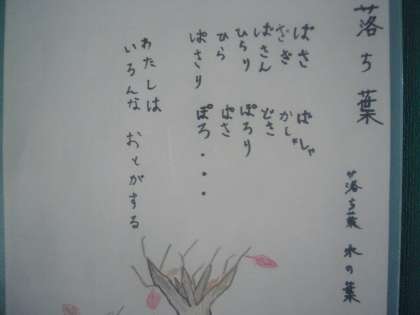 落ち葉
落ち葉
ばさ ばしゃ
ばさん どさ
ひらり ぽろり
ひら ばさ
ぱさり ぽろ・・・
わたしは
いろんな おとがする